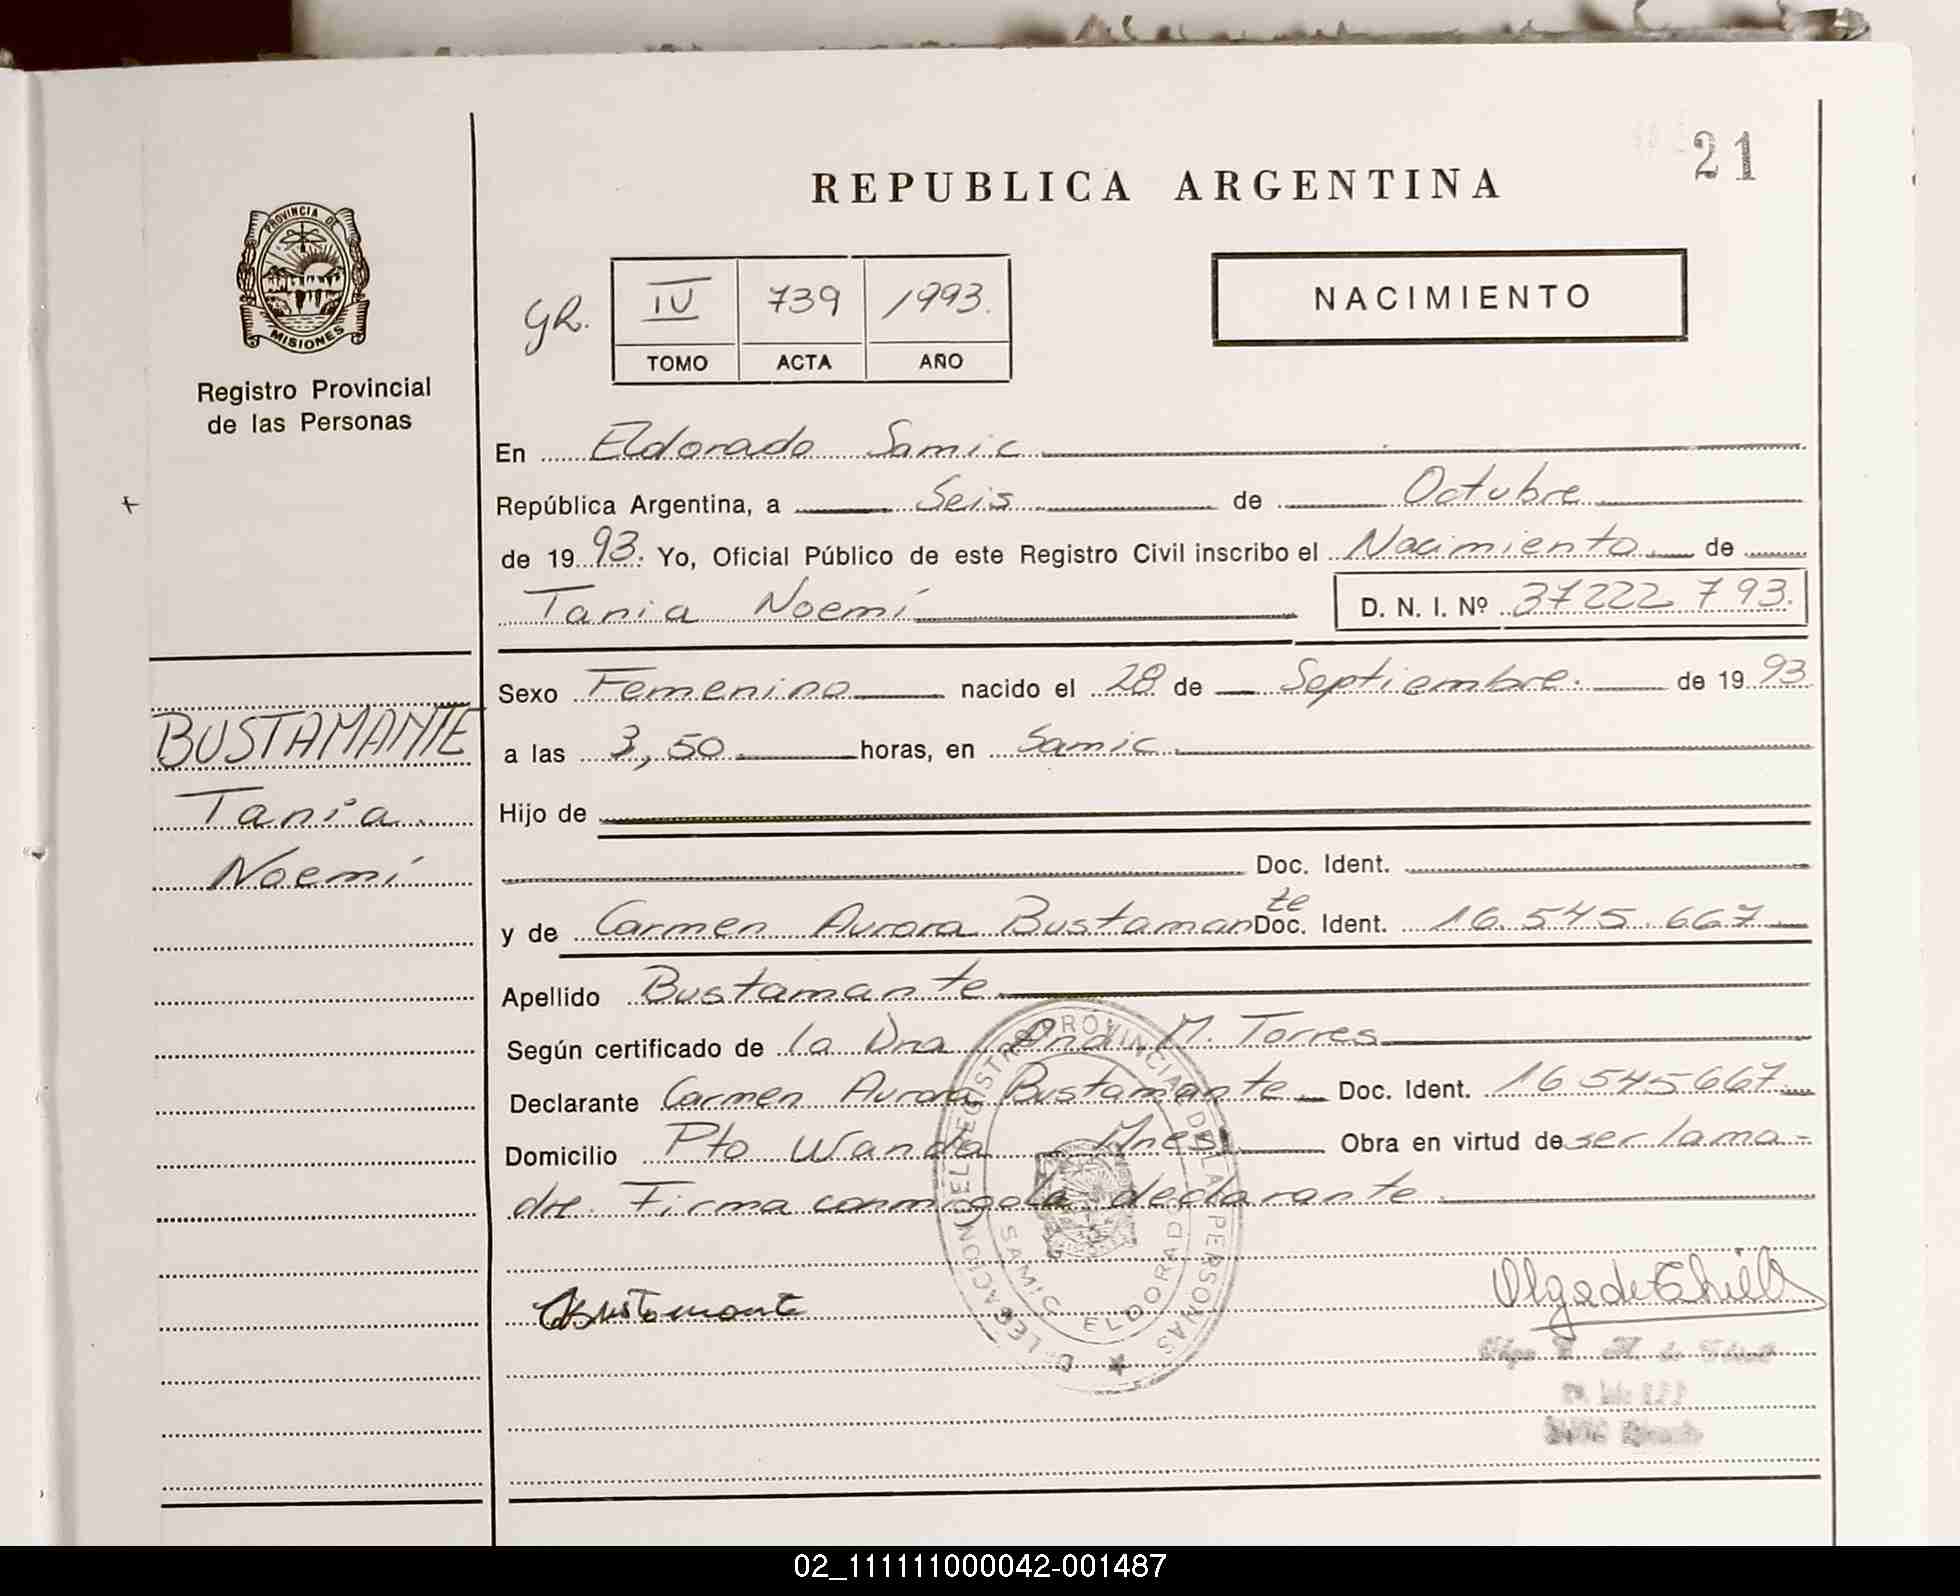 21
REPUBLICA ARGENTINA
PROVINCIA DE
MISIONES
Registro Provincial
de las Personas
NACIMIENTO
GR.
IV 739 1993.
TOMO ACTA AÑO
En Eldorado Samic
República Argentina, a Seis de Octubre
de 1993. Yo, Oficial Público de este Registro Civil inscribo el Nacimiento de
Tania Noemí D. N. I. Nº 37222793.
Sexo Femenino nacido el 28 de Septiembre. de 1993
BUSTAMANTE
Tania
Noemí
a las 3,50 horas, en Samic
Hijo de
Doc. Ident.
y de Carmen Aurora Bustamante Doc. Ident. 16.545.667
Apellido Bustamante
Según certificado de la Dra Ana M. Torres
Declarante Carmen Aurora Bustamante Doc. Ident. 16545667
Domicilio Pto Wanda Mnes. Obra en virtud de ser la ma-
dre. Firma conmigo la declarante.
DELEGACION DEL REGISTRO PROVINCIAL DE LAS PERSONAS
SAMIC ELDORADO
Bustamante
02_111111000042-001487